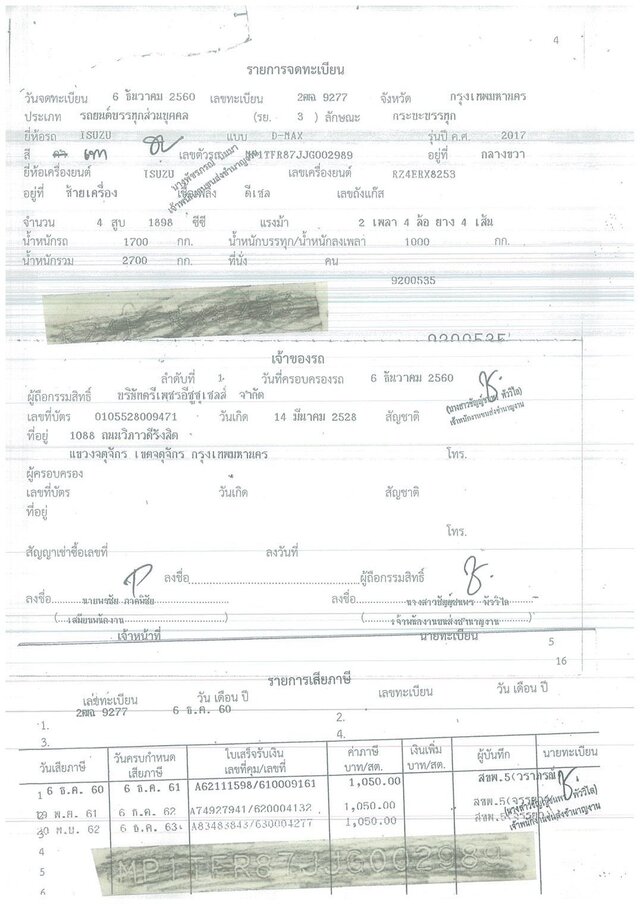 4
รายการจดทะเบียน
วันจดทะเบียน 6 ธันวาคม 2560 เลขทะเบียน 2ฒฌ 9277 จังหวัด กรุงเทพมหานคร
ประเภท รถยนต์บรรทุกส่วนบุคคล (รย. 3 ) ลักษณะ กระบะบรรทุก
ยี่ห้อรถ ISUZU แบบ D-MAX รุ่นปี ค.ศ. 2017
สี เทา เลขตัวรถ MP1TFR87JJG002989 อยู่ที่ กลางขวา
ยี่ห้อเครื่องยนต์ ISUZU เลขเครื่องยนต์ RZ4ERX8253
อยู่ที่ ซ้ายเครื่อง เชื้อเพลิง ดีเซล เลขถังแก๊ส
จำนวน 4 สูบ 1898 ซีซี แรงม้า 2 เพลา 4 ล้อ ยาง 4 เส้น
น้ำหนักรถ 1700 กก. น้ำหนักบรรทุก/น้ำหนักลงเพลา 1000 กก.
น้ำหนักรวม 2700 กก. ที่นั่ง คน
9200535
9200535
เจ้าของรถ
ลำดับที่ 1 วันที่ครอบครองรถ 6 ธันวาคม 2560
ผู้ถือกรรมสิทธิ์ บริษัทตรีเพชรอีซูซุเซลส์ จำกัด
เลขที่บัตร 0105528009471 วันเกิด 14 มีนาคม 2528 สัญชาติ
เจ้าพนักงานขนส่งชำนาญงาน
ที่อยู่ 1088 ถนนวิภาวดีรังสิต
แขวงจตุจักร เขตจตุจักร กรุงเทพมหานคร โทร.
ผู้ครอบครอง
เลขที่บัตร วันเกิด สัญชาติ
ที่อยู่
โทร.
สัญญาเช่าซื้อเลขที่ ลงวันที่
ลงชื่อ ผู้ถือกรรมสิทธิ์
ลงชื่อ ลงชื่อ
(เสมียนพนักงาน) (เจ้าพนักงานขนส่งชำนาญงาน)
เจ้าหน้าที่ นายทะเบียน
5
16
รายการเสียภาษี
เลขทะเบียน วัน เดือน ปี เลขทะเบียน วัน เดือน ปี
1. 2ฒฌ 9277 6 ธ.ค. 60 2.
3. 4.
วันเสียภาษี วันครบกำหนดเสียภาษี ใบเสร็จรับเงิน เลขที่คุม/เลขที่ ค่าภาษี บาท/สต. เงินเพิ่ม บาท/สต. ผู้บันทึก นายทะเบียน
1 6 ธ.ค. 60 6 ธ.ค. 61 A62111598/610009161 1,050.00 สขพ.5(วราภรณ์)
29 พ.ย. 61 6 ธ.ค. 62 A74927941/620004132 1,050.00 สขพ.5
30 พ.ย. 62 6 ธ.ค. 63 A83483843/630004277 1,050.00 สขพ.5
เจ้าพนักงานขนส่งชำนาญงาน
4
MP1TFR87JJG002989
5
6